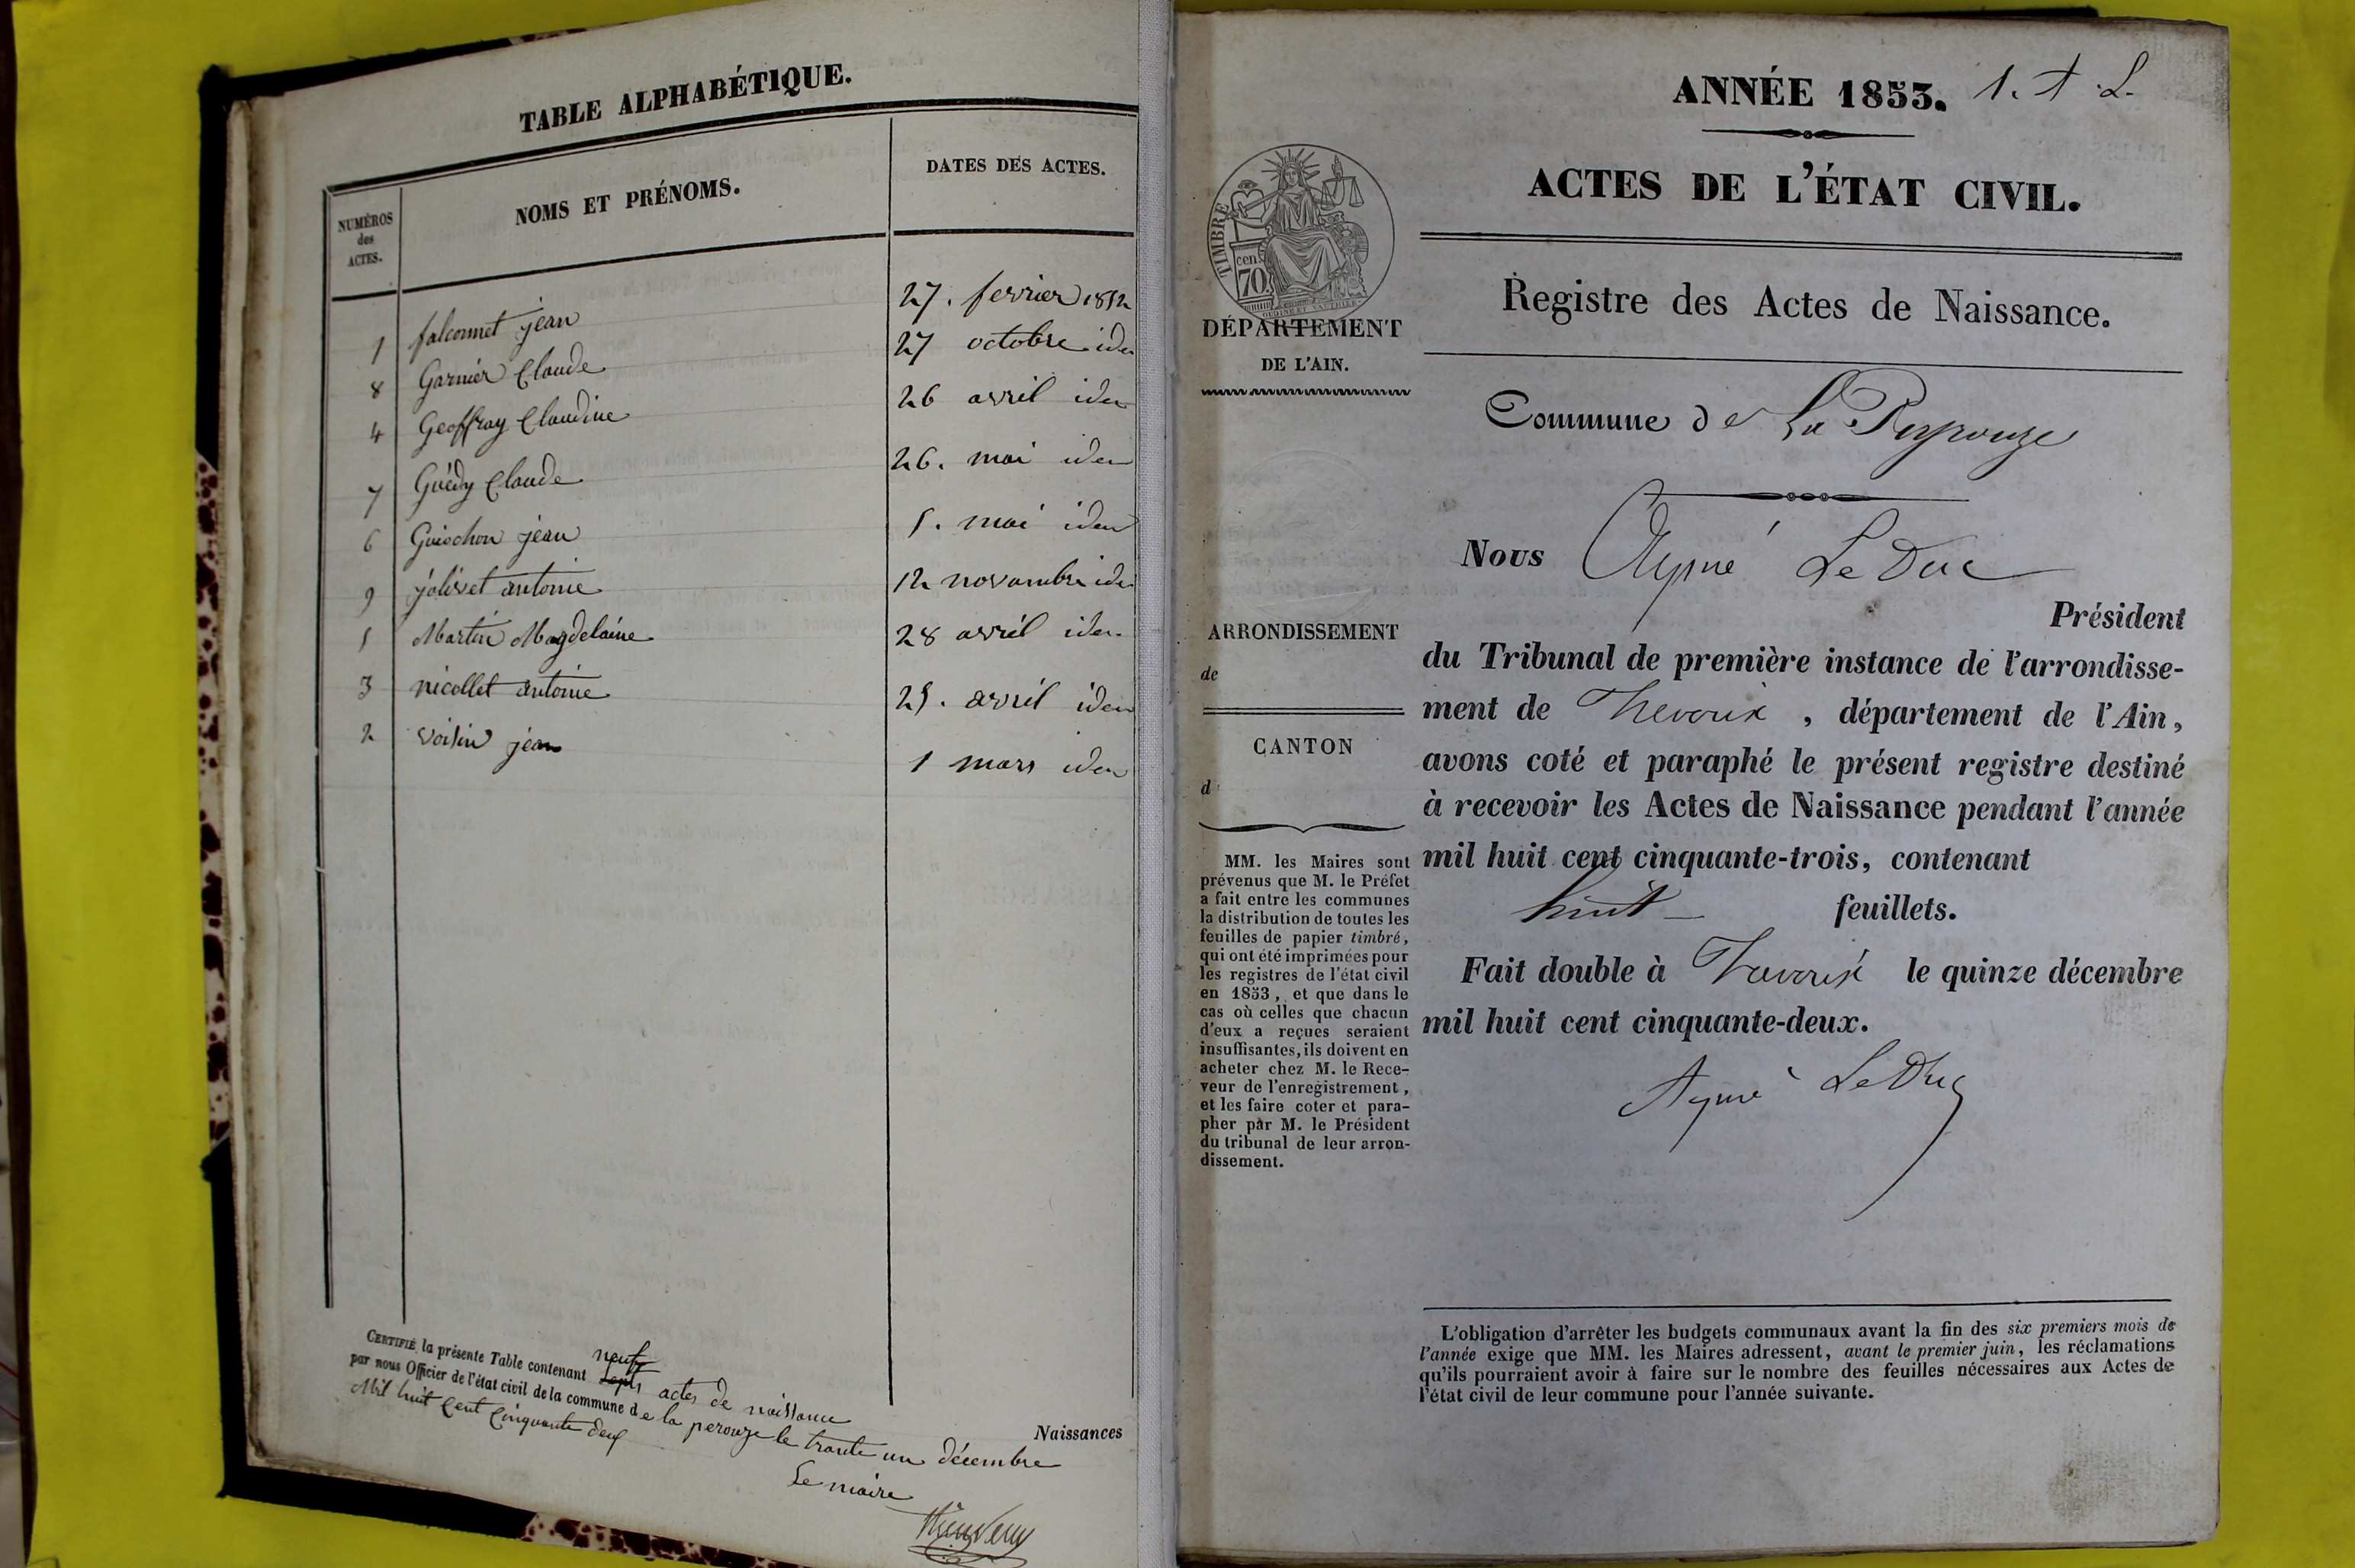 TABLE ALPHABÉTIQUE.
NUMÉROS des ACTES.
NOMS ET PRÉNOMS.
DATES DES ACTES.
1 falconnet jean 27. fevrier 1852
8 Garnier Claude 27 octobre iden
4 Geoffray Claudine 26 avril iden
7 Guédy Claude 26. mai iden
6 Guichon jean 5. mai iden
9 jolivet antoine 12 novembre iden
5 Martin Magdelaine 28 avril iden
3 nicollet antoine 25. avril iden
2 voisin jean 1 mars iden
CERTIFIÉ la présente Table contenant neuf actes de naissance
par nous Officier de l'état civil de la commune de la perouze le trante un décembre
Mil huit Cent Cinquante deux
Le maire
Naissances
ANNÉE 1853. 1. A. L.
ACTES DE L'ÉTAT CIVIL.
Registre des Actes de Naissance.
TIMBRE
cen. 70
DÉPARTEMENT
DE L'AIN.
ARRONDISSEMENT
de
CANTON
d
MM. les Maires sont
prévenus que M. le Préfet
a fait entre les communes
la distribution de toutes les
feuilles de papier timbré,
qui ont été imprimées pour
les registres de l'état civil
en 1853, et que dans le
cas où celles que chacun
d'eux a reçues seraient
insuffisantes, ils doivent en
acheter chez M. le Rece-
veur de l'enregistrement,
et les faire coter et para-
pher par M. le Président
du tribunal de leur arron-
dissement.
Commune de La Peyrouze
Nous Aymé Le Duc
Président
du Tribunal de première instance de l'arrondisse-
ment de Trevoux, département de l'Ain,
avons coté et paraphé le présent registre destiné
à recevoir les Actes de Naissance pendant l'année
mil huit cent cinquante-trois, contenant
huit feuillets.
Fait double à Trevoux le quinze décembre
mil huit cent cinquante-deux.
Aymé Le Duc
L'obligation d'arrêter les budgets communaux avant la fin des six premiers mois de
l'année exige que MM. les Maires adressent, avant le premier juin, les réclamations
qu'ils pourraient avoir à faire sur le nombre des feuilles nécessaires aux Actes de
l'état civil de leur commune pour l'année suivante.